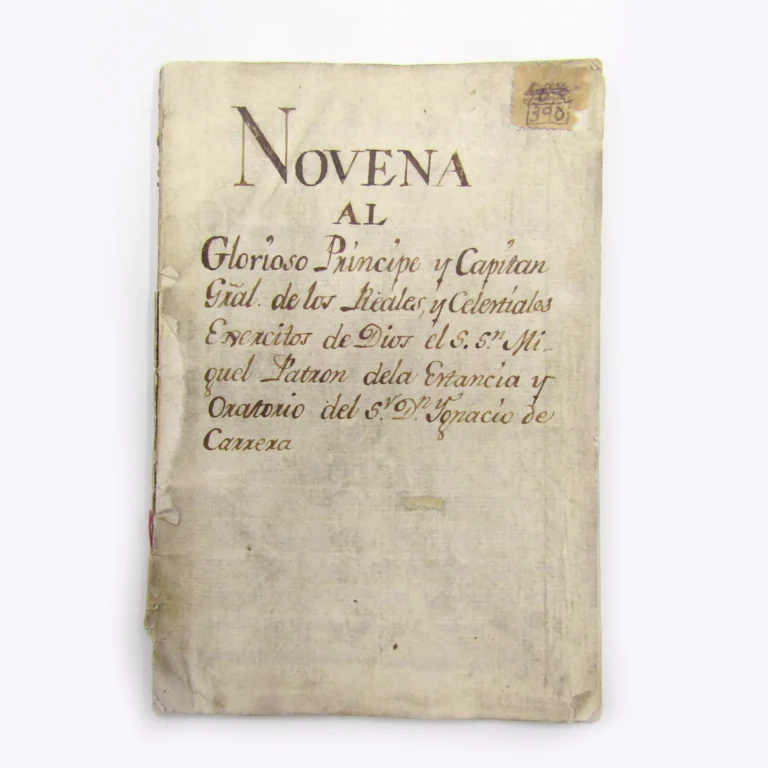 390
NOVENA
AL
Glorioso Principe y Capitan
Grãl. de los Reales, y Celestiales
Exercitos de Dios el S. Sn. Mi-
guel Patron dela Estancia y
Oratorio del Sr. Dn. Ygnacio de
Carrera